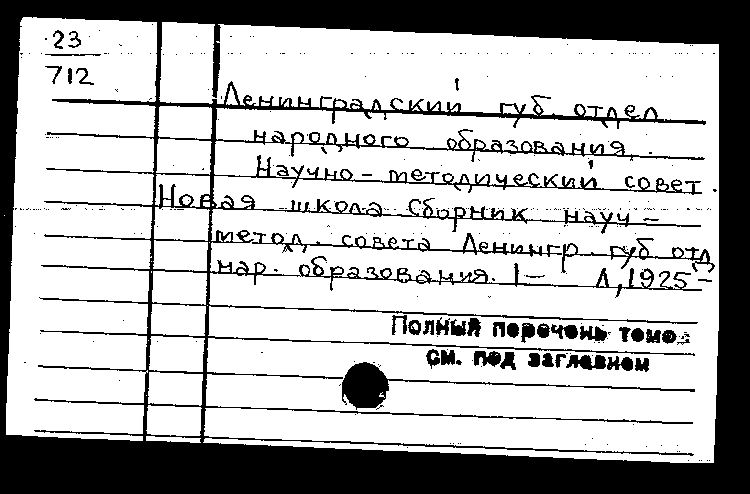 23
712
Ленинградский губ. отдел
народного образования.
Научно-методический совет.
Новая школа Сборник науч-
метод. совета Ленингр. губ отд
нар. образования. 1- Л, 1925-
Полный перечень томов
см. под заглавием